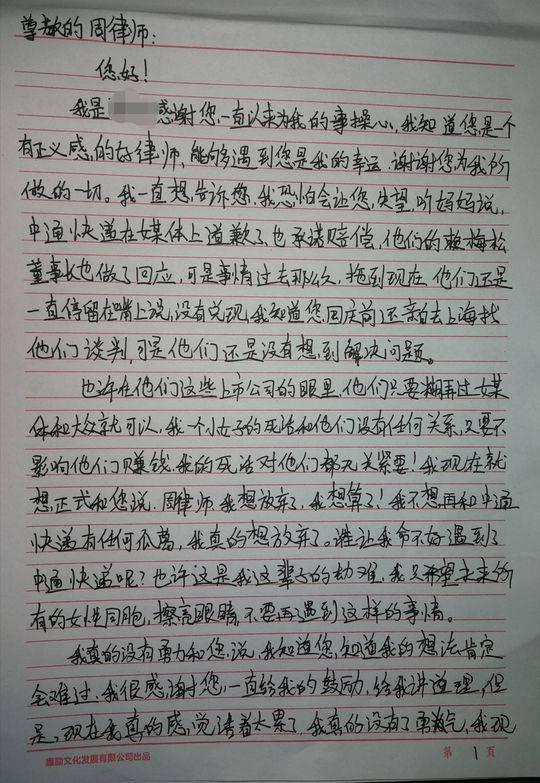 尊敬的周律师:
您好!
我是 感谢您,一直以来为我的事操心,我知道您是一个
有正义感的好律师,能够遇到您是我的幸运.谢谢您为我所
做的一切。我一直想告诉您,我恐怕会让您失望,听妈妈说,
中通快递在媒体上道歉了,也承诺赔偿,他们的赖梅松
董事长也做了回应,可是事情过去那么久,拖到现在他们还是
一直停留在嘴上说,没有兑现,我知道您回庆前还亲自去上海找
他们谈判,可是他们还是没有想到解决问题。
也许在他们这些上市公司的眼里,他们只要糊弄过媒
体和大众就可以,我一个小女子的死活和他们没有任何关系,只要不
影响他们赚钱,我的死活对他们都无关紧要!我现在就
想正式和您说,周律师我想放弃了,我想算了!我不想再和中通
快递有任何瓜葛,我真的想放弃了。谁让我命不好遇到了
中通快递呢?也许这是我这辈子的劫难,我只希望未来所
有的女性同胞,擦亮眼睛不要再遇到这样的事情。
我真的没有勇气和您说,我知道您知道我的想法肯定
会难过.我很感谢您一直给我的鼓励.给我讲道理,但
是,现在我真的感觉活着太累了,我真的没有了勇气,我现
鑫励文化发展有限公司出品 第 1 页